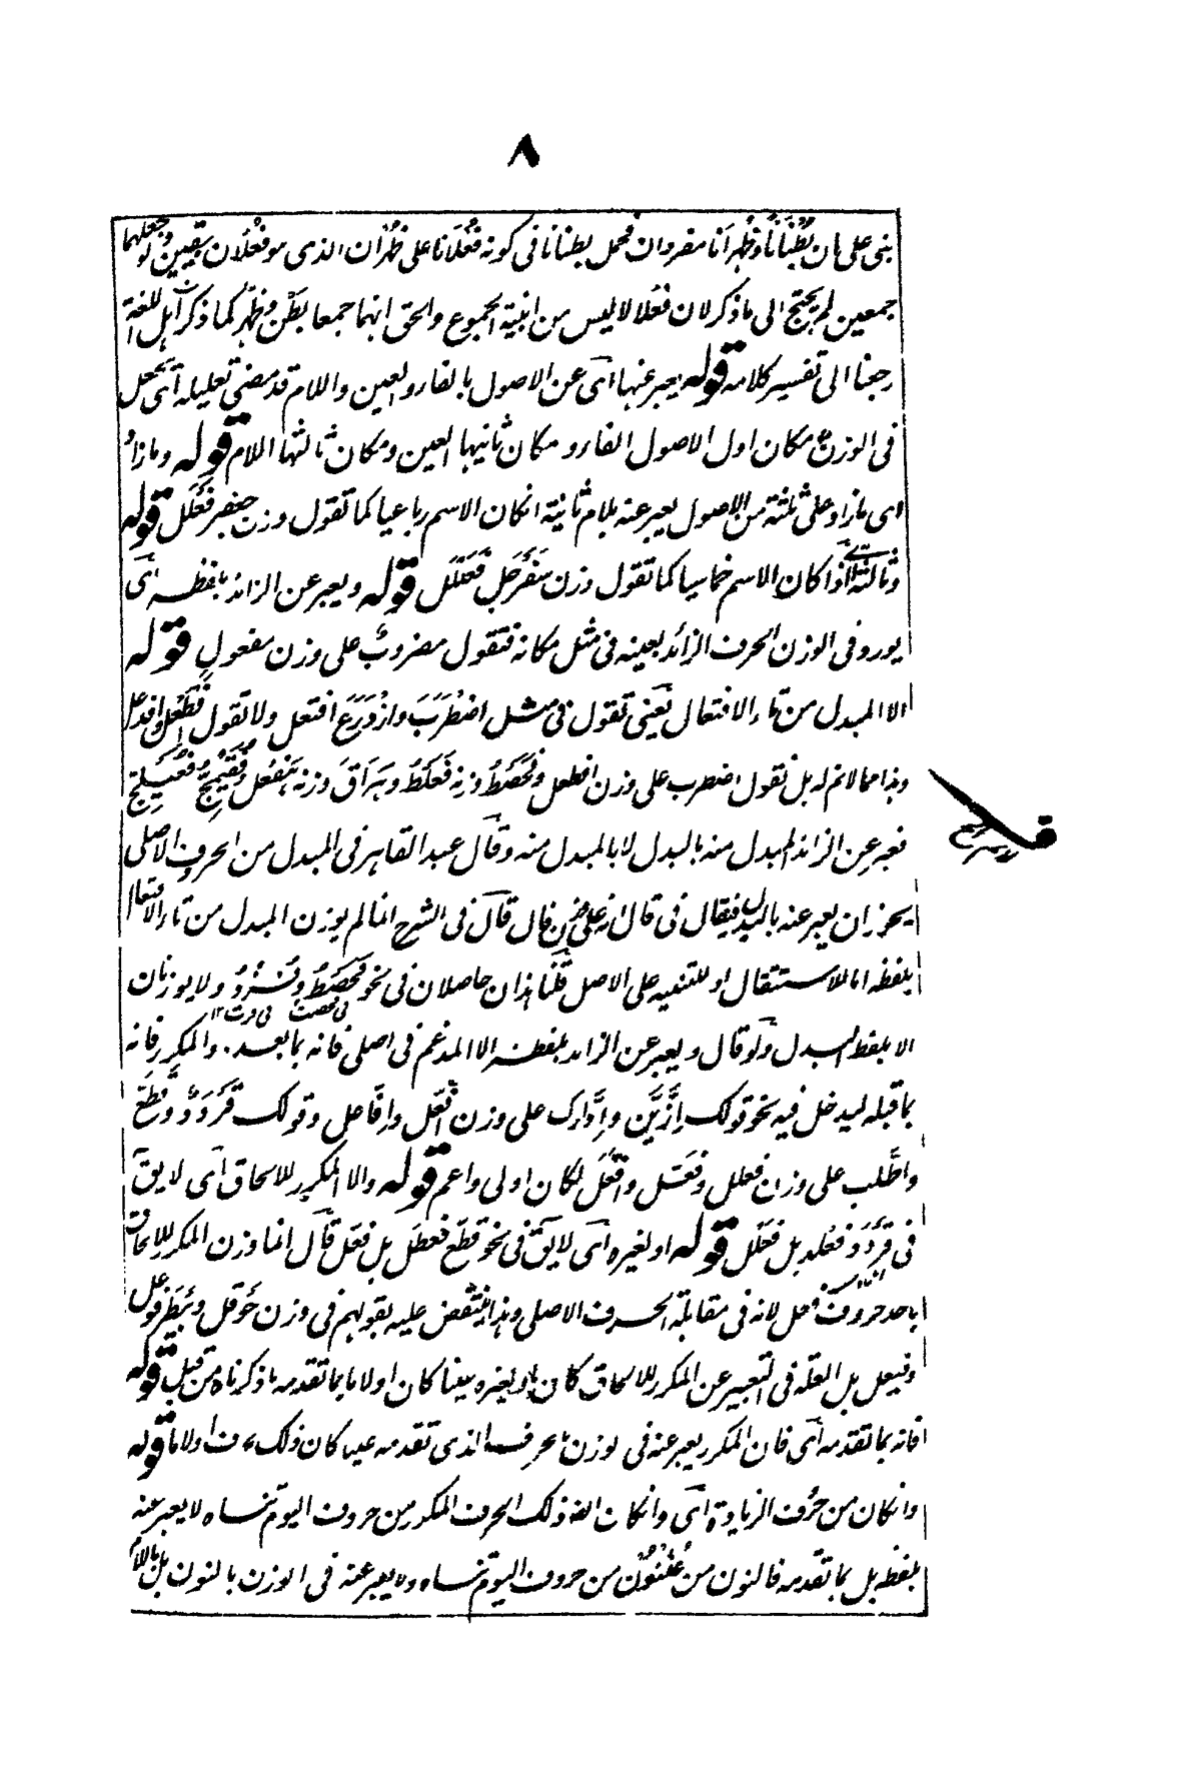 ٨
بنى على ان بُطْنَانًا وظُهْرَانا مفردان فحمل بطنانا فى كونه فُعْلَانا على ظُهْرَان الذى هو فُعْلَان بيقين ولو جعلهما
جمعين لم يحتج الى ما ذكر لان فُعْلالا ليس من ابنية الجموع والحق انهما جمعا بَطْن وظَهْر كما ذكر اهل اللغة
رجعنا الى تفسير كلامه قوله يعبر عنها اى عن الاصول بالفاء والعين واللام قد مضى تعليله اى يجعل
فى الوزن مكان اول الاصول الفاء و مكان ثانيها العين ومكان ثالثها اللام قوله وما زاد
اى ما زاد على ثلثة من الاصول يعبر عنه بلام ثانية انكان الاسم رباعيا كما تقول وزن جعفر فَعْلَل قوله
وثالثة اذا كان الاسم خماسيا كما تقول وزن سَفَرْجَل فَعَلَّل قوله ويعبر عن الزائد بلفظه اى
يورد فى الوزن الحرف الزائد بعينه فى مثل مكانه فتقول مضروبٌ على وزن مفعول قوله
الا المبدل من تاء الافتعال يعنى تقول فى مثل اضْطَرَبَ وازْدَرَعَ افتعل ولا تقول افْطَعَل وافدعل
وهذا مما لانم له بل تقول اضطرب على وزن افطعل وفَحَصْطُ وزنه فَعَلْطُ وهَرَاقَ وزنه هَفْعَل وفُقَيْمِجّ فُعَيْلِج
فعبر عن الزائد المبدل منه بالبدل لا بالمبدل منه وقال عبد القاهر فى المبدل من الحرف الاصلى
يجوز ان يعبر عنه بالبدل فيقال فى قال انه على وزن فال قال فى الشرح انما لم يوزن المبدل من تاء الافتعال
بلفظه اما للاستثقال او للتنبيه على الاصل قلنا هذان حاصلان فى نحو فحصط وفُزْدُ ولا يوزنان
فى فحصت فى فزت ١٢
الا بلفظ البدل ولو قال ويعبر عن الزائد بلفظه الا المدغم فى اصلى فانه بما بعده. والمكرر فانه
بما قبله ليدخل فيه نحو قولك ازَّيَّن وادَّارك على وزن افَّعَّل وافَّاعل وقولك قَرْدَدٌ وقطَّع
واطَّلب على وزن فعلل وفعَّل وافَّعَل لكان اولى واعم قوله والا المكرر للالحاق اى لا يقَ
فى قَرْدَد فَعْلَد بل فَعْلَل قوله او لغيره اى لا يقَ فى نحو قطّع فعطل بل فعّل قال انما وزن المكرر للالحاق
باحد حروف فعل لانه فى مقابلة الحرف الاصلى وهذا ينتقض عليه بقولهم فى وزن حَوْقَل وبَيْطَر فوعل
وفيعل بل العلة فى التعبير عن المكرر للالحاق كان او لغيره عينا كان او لاما بما تقدمه ما ذكرناه من قبل قوله
فانه بما تقدمه اى فان المكرر يعبر عنه فى الوزن بالحرف الذى تقدمه عينا كان ذلك او لاما قوله
وانكان من حروف الزيادة اى وانكان ذلك الحرف المكرر من حروف اليوم تنساه لا يعبر عنه
بلفظه بل بما تقدمه فالنون من عُثْنُون من حروف اليوم تنساه ولا يعبر عنه فى الوزن بالنون بل باللام